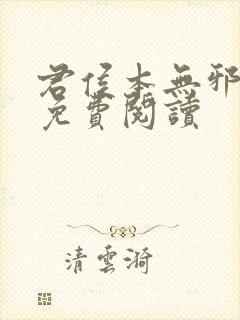 君侯本無邪
免費閱讀
清雲漪